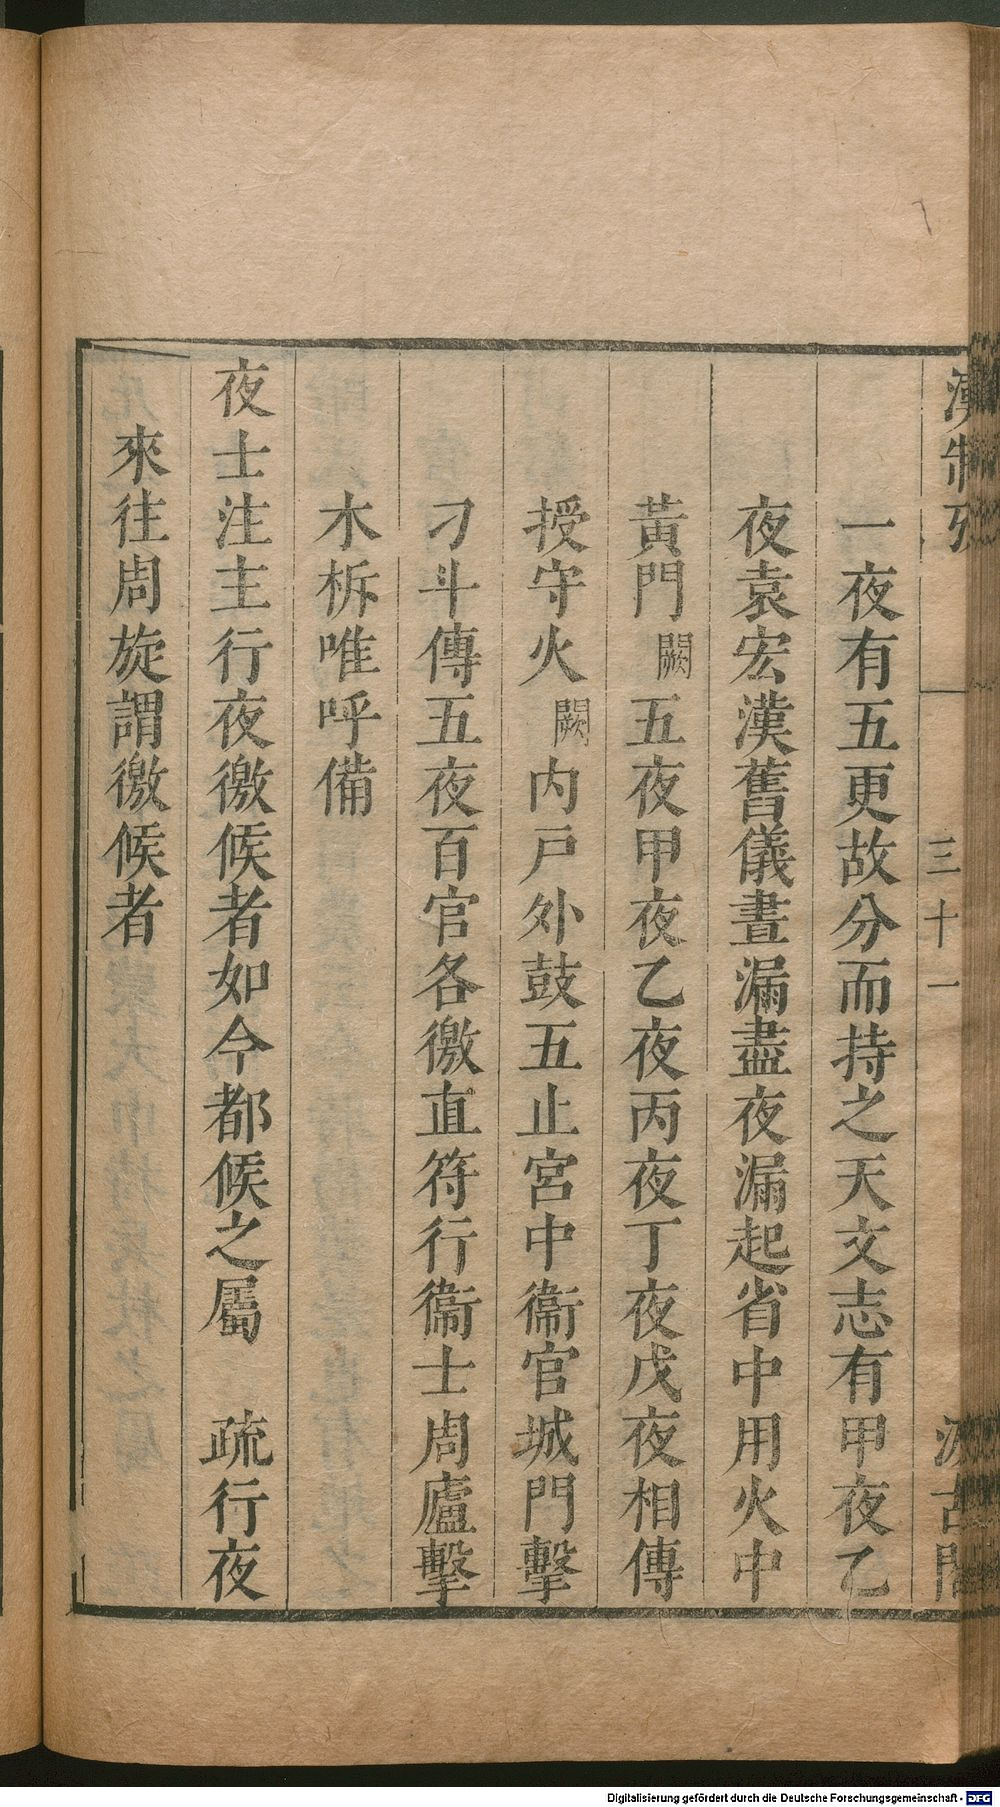 漢制攷
三十一
汲古閣
一夜有五更故分而持之天文志有甲夜乙
夜袁宏漢舊儀晝漏盡夜漏起省中用火中
黃門闕五夜甲夜乙夜丙夜丁夜戊夜相傳
授守火闕內戶外鼓五止宮中衞官城門擊
刁斗傳五夜百官各徼直符行衞士周廬擊
木柝唯呼備
夜士注主行夜徼候者如今都候之屬 疏行夜
來往周旋謂徼候者
Digitalisierung gefördert durch die Deutsche Forschungsgemeinschaft - DFG